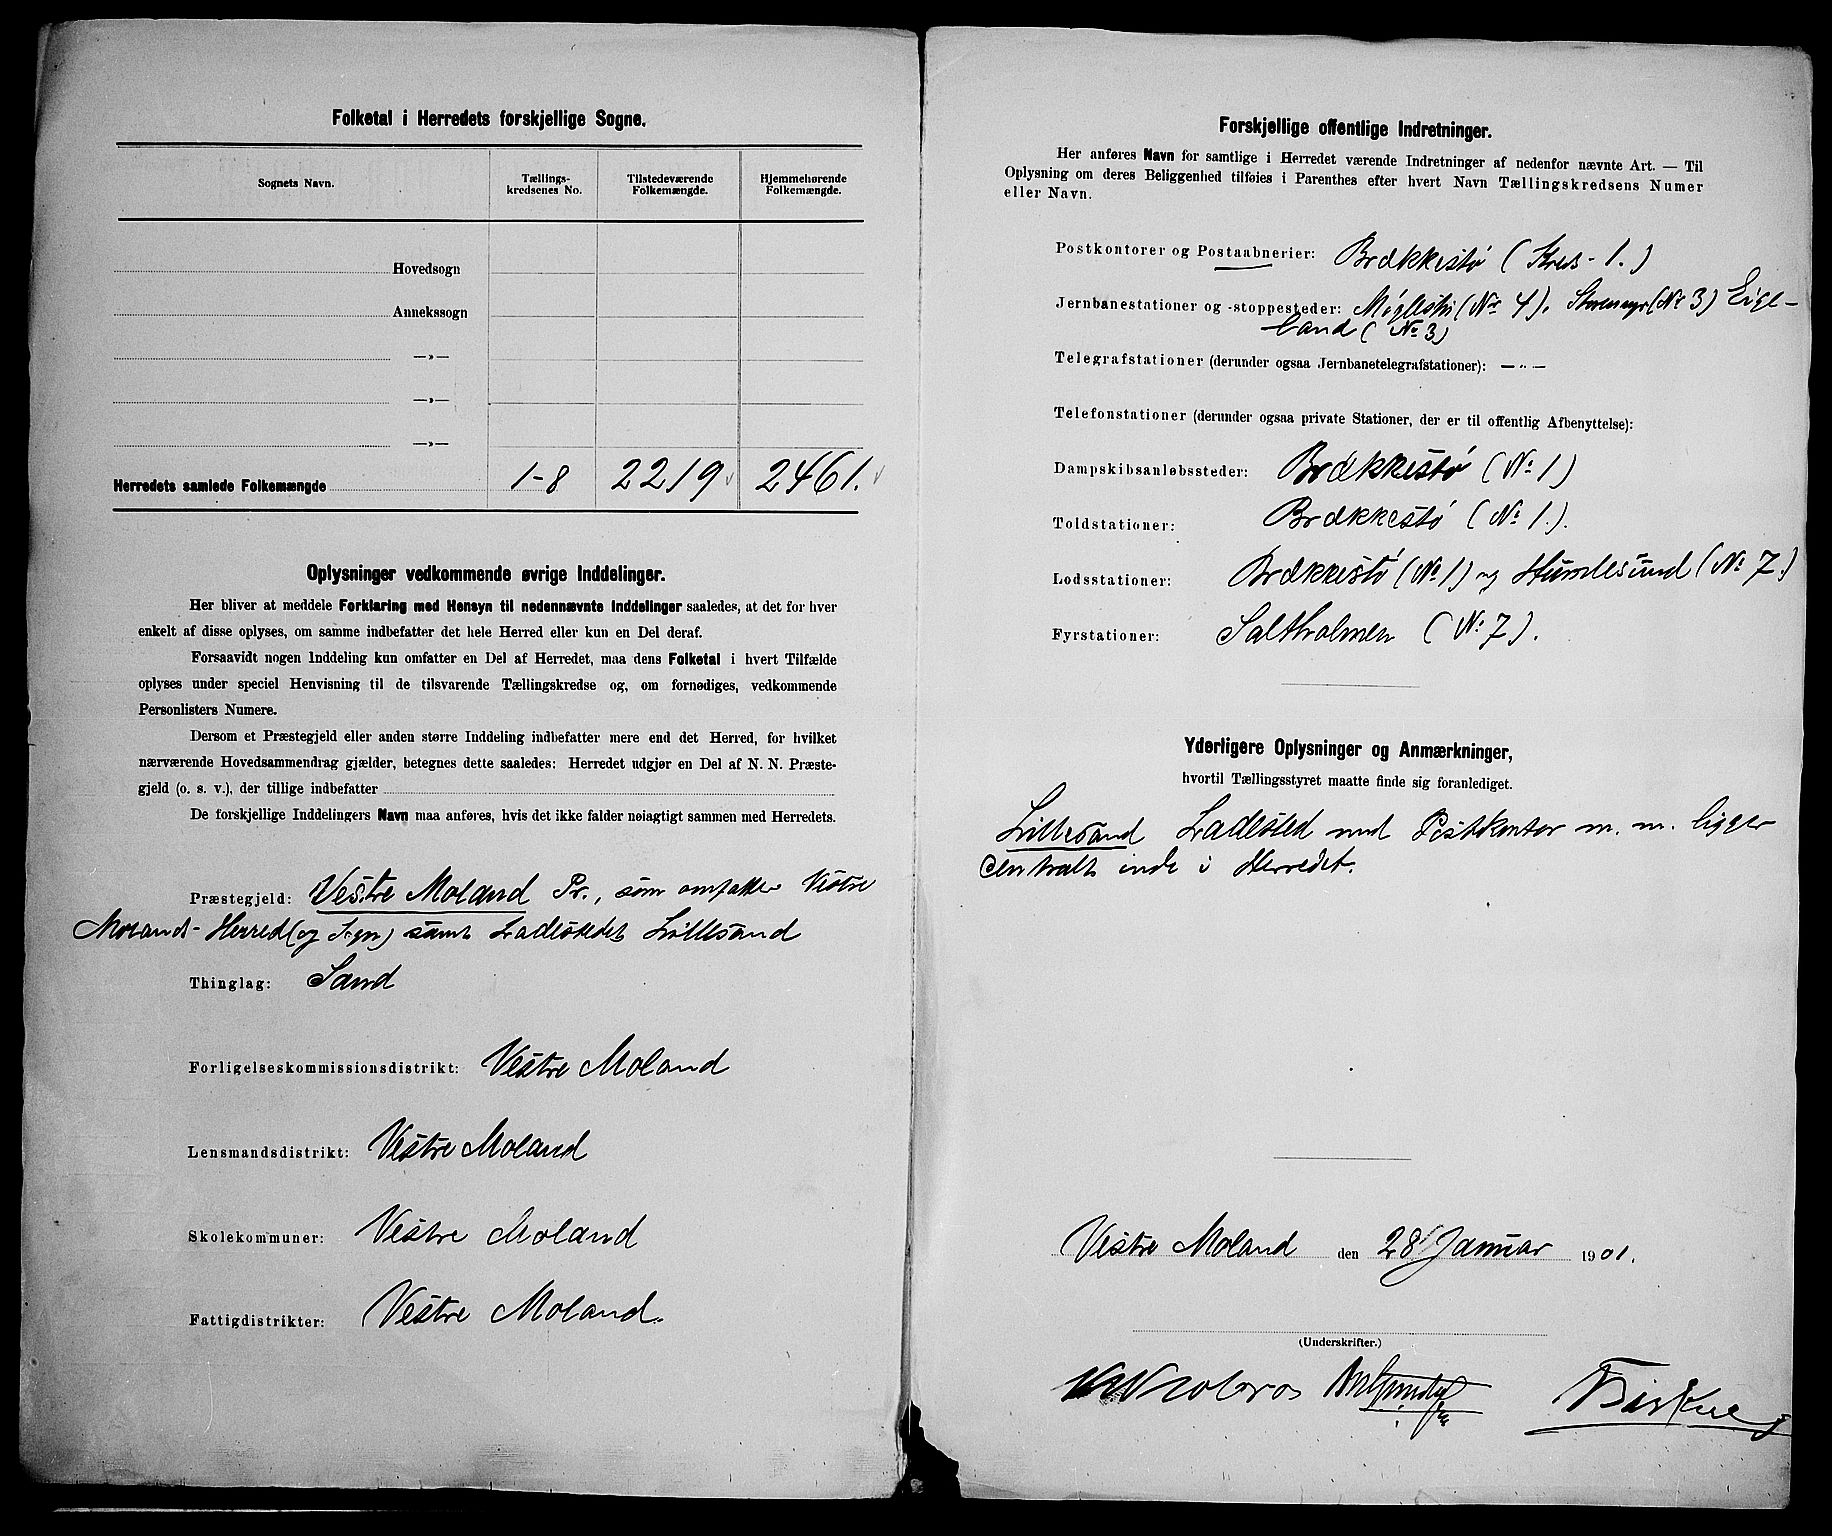 Folketal i Herredets forskjellige Sogne.
Sognets Navn.
Tællings-
kredsenes No.
Tilstedeværende
Folkemængde.
Hjemmehørende
Folkemængde.
Hovedsogn
Annekssogn
—»—
—»—
—»—
Herredets samlede Folkemængde 1-8 2219 2461.
Oplysninger vedkommende øvrige Inddelinger.
Her bliver at meddele Forklaring med Hensyn til nedennævnte Inddelinger saaledes, at det for hver
enkelt af disse oplyses, om samme indbefatter det hele Herred eller kun en Del deraf.
Forsaavidt nogen Inddeling kun omfatter en Del af Herredet, maa dens Folketal i hvert Tilfælde
oplyses under speciel Henvisning til de tilsvarende Tællingskredse og, om fornødiges, vedkommende
Personlisters Numere.
Dersom et Præstegjeld eller anden større Inddeling indbefatter mere end det Herred, for hvilket
nærværende Hovedsammendrag gjælder, betegnes dette saaledes: Herredet udgjør en Del af N. N. Præste-
gjeld (o. s. v.), der tillige indbefatter
De forskjellige Inddelingers Navn maa anføres, hvis det ikke falder nøiagtigt sammen med Herredets.
Præstegjeld: Vestre Moland Pr., som omfatter Vestre
Moland- Herred (og Sogn) samt Ladestedet Lillesand
Thinglag: Sand
Forligelseskommissionsdistrikt: Vestre Moland
Lensmandsdistrikt: Vestre Moland
Skolekommuner: Vestre Moland
Fattigdistrikter: Vestre Moland.
Forskjellige offentlige Indretninger.
Her anføres Navn for samtlige i Herredet værende Indretninger af nedenfor nævnte Art. — Til
Oplysning om deres Beliggenhed tilføies i Parenthes efter hvert Navn Tællingskredsens Numer
eller Navn.
Postkontorer og Postaabnerier: Brækkestø (Kreds - 1.)
Jernbanestationer og -stoppesteder: (Nr 4). Storemyr (No 3) Eige-
land (No 3)
Telegrafstationer (derunder ogsaa Jernbanetelegrafstationer): — " —
Telefonstationer (derunder ogsaa private Stationer, der er til offentlig Afbenyttelse):
Dampskibsanløbssteder: Brækkestø (No 1)
Toldstationer: Brækkestø (No 1.).
Lodsstationer: Brækkestø (No 1) og Humlesund (No 7.)
Fyrstationer: Saltholmen (No 7).
Yderligere Oplysninger og Anmærkninger,
hvortil Tællingsstyret maatte finde sig foranlediget.
Lillesand Ladested med Postkontor m. m. ligger
centralt inde i Herredet.
Vestre Moland den 28 Januar 1901.
(Underskrifter.)